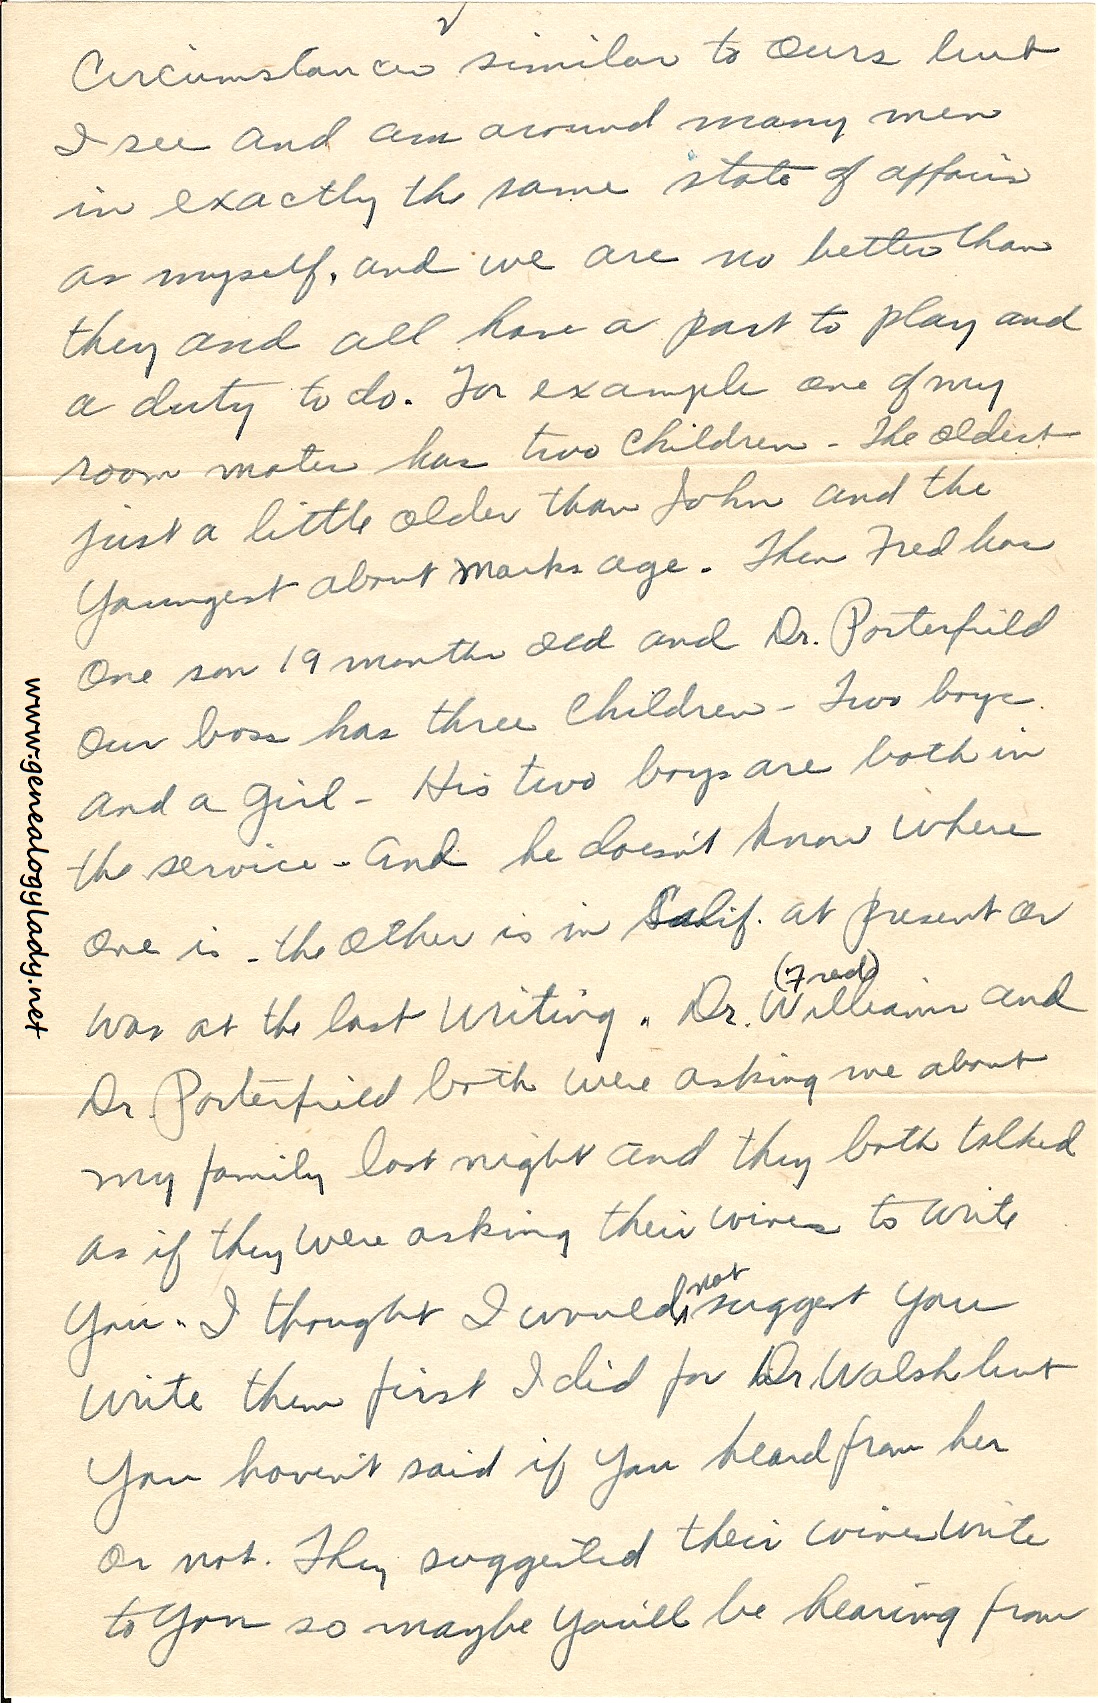 2
Circumstances similar to ours but
I see and am around many men
in exactly the same state of affairs
as myself, and we are no better than
they and all have a part to play and
a duty to do. For example one of my
room mates has two children - The oldest
just a little older than John and the
Youngest about Marks age. Then Fred has
One son 19 months old and Dr. Porterfield
our boss has three children - Two boys
and a girl - His two boys are both in
the service - and he doesn't know where
one is - the other is in Calif. at present or
(Fred)
was at the last writing. Dr. Williams and
Dr. Porterfield both were asking me about
my family last night and they both talked
as if they were asking their wives to write
not
You. I thought I would suggest you
write them first I did for Dr Walsh but
You haven't said if you heard from her
or not. They suggested their wives write
to you so maybe you'll be hearing from
www.genealogylady.net